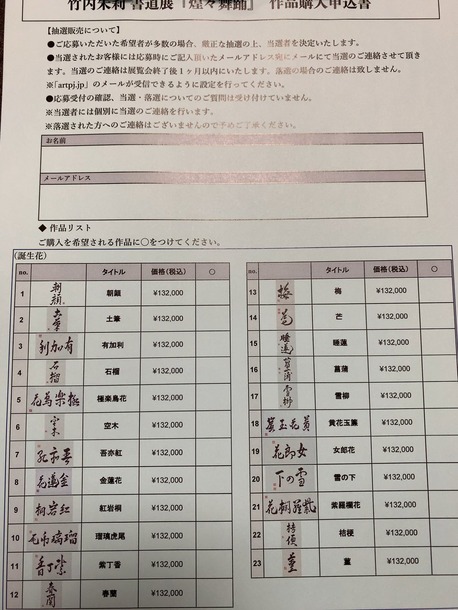 竹内朱莉 書道展『煌々舞踊』 作品購入申込書
【抽選販売について】
●ご応募いただいた希望者が多数の場合、厳正な抽選の上、当選者を決定いたします。
●当選されたお客様には応募時にご記入頂いたメールアドレス宛にメールにて当選のご連絡させて頂き
ます。当選のご連絡は展覧会終了後1ヶ月以内にいたします。落選の場合のご連絡は致しません。
※「artpj.jp」のメールが受信できるように設定を行ってください。
●応募受付の確認、当選・落選についてのご質問は受け付けていません。
※当選者には個別に当選のご連絡を行います。
※落選された方へのご連絡はございませんので予めご了承ください。
お名前
メールアドレス
◆ 作品リスト
ご購入を希望される作品に〇をつけてください。
(誕生花)
no. タイトル 価格(税込) 〇
1 朝顔 朝顔 ¥132,000
2 土筆 土筆 ¥132,000
3 有加利 ¥132,000
4 石榴 石榴 ¥132,000
5 極楽鳥花 ¥132,000
6 空木 空木 ¥132,000
7 吾亦紅 ¥132,000
8 金蓮花 ¥132,000
9 紅岩桐 ¥132,000
10 瑠璃虎尾 ¥132,000
11 紫丁香 ¥132,000
12 春蘭 春蘭 ¥132,000
no. タイトル 価格(税込) 〇
13 梅 梅 ¥132,000
14 芒 ¥132,000
15 睡蓮 睡蓮 ¥132,000
16 菖蒲 菖蒲 ¥132,000
17 雪柳 雪柳 ¥132,000
18 黄花玉簾 ¥132,000
19 花郎女 女郎花 ¥132,000
20 下の雪 雪の下 ¥132,000
21 紫羅欄花 ¥132,000
22 桔梗 ¥132,000
23 菫 菫 ¥132,000